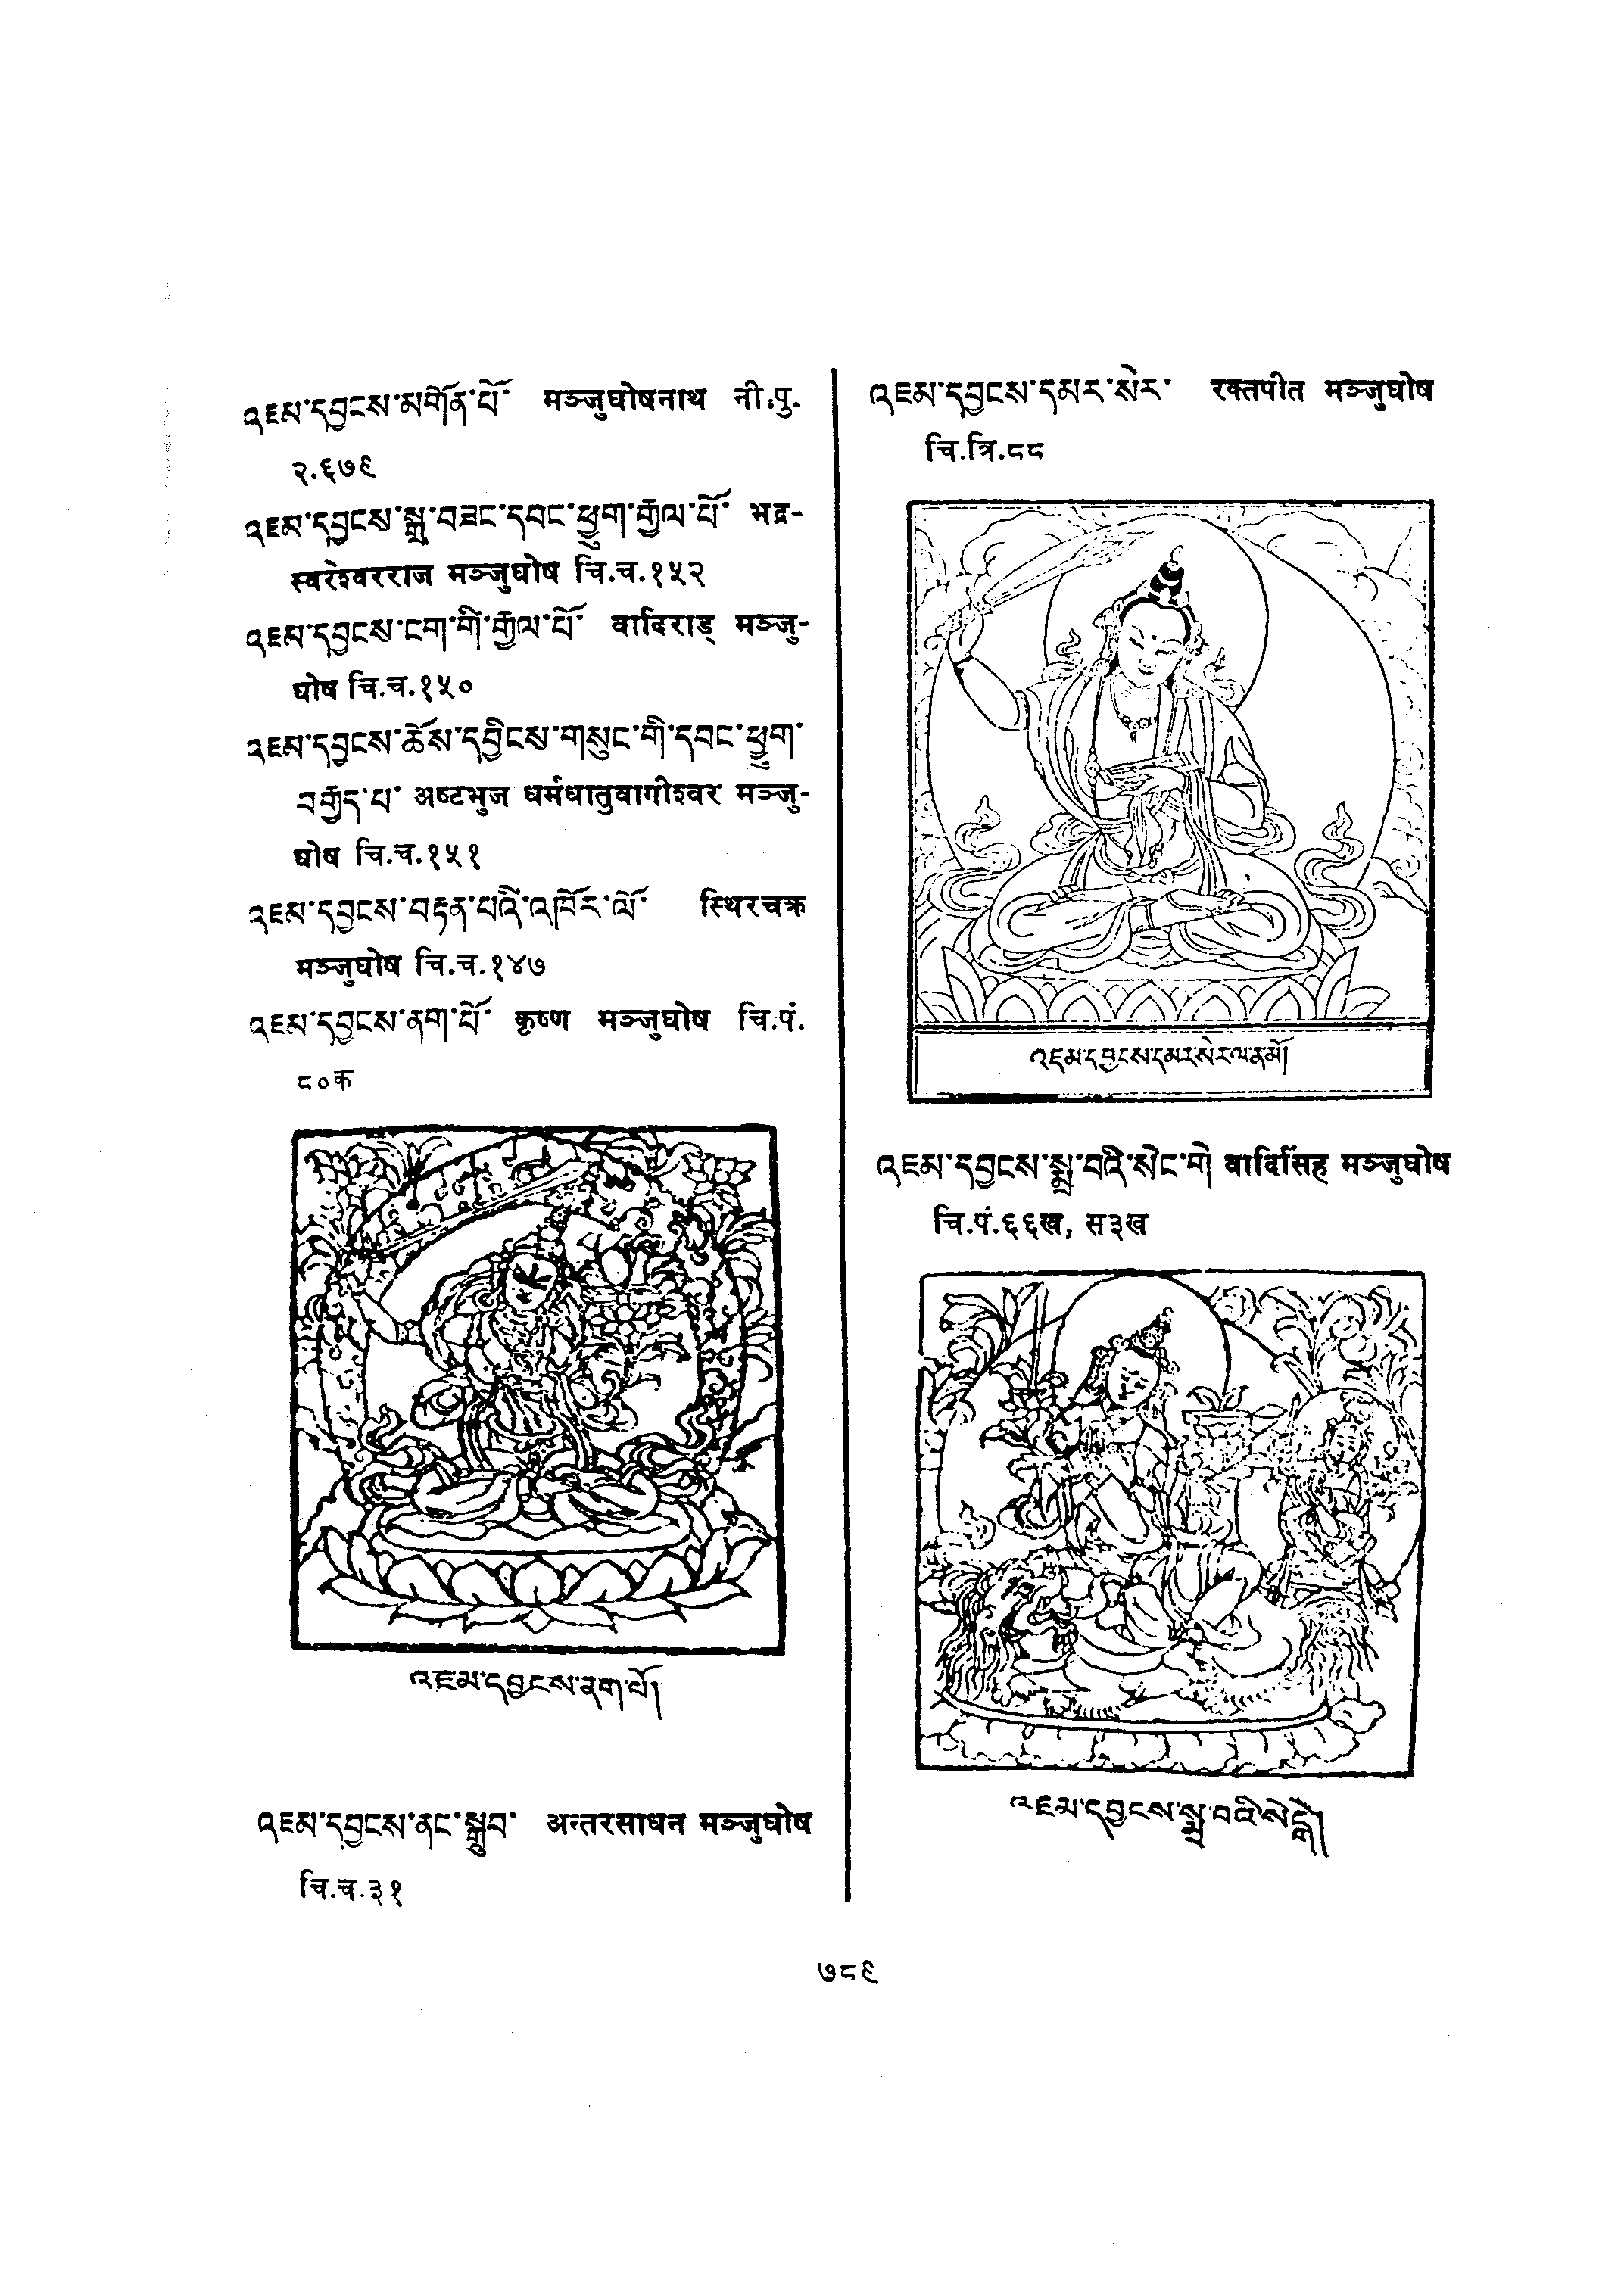 འཇམ་དབྱངས་མགོན་པོ་ मञ्जुघोषनाथ नी.पु.
२.६७९
འཇམ་དབྱངས་སྒྲ་བཟང་དབང་ཕྱུག་རྒྱལ་པོ་ भद्र-
स्वरेश्वरराज मञ्जुघोष चि.च.१५२
འཇམ་དབྱངས་ངག་གི་རྒྱལ་པོ་ वादिराड् मञ्जु-
घोष चि.च.१५०
འཇམ་དབྱངས་ཆོས་དབྱིངས་གསུང་གི་དབང་ཕྱུག་
བརྒྱད་པ་ अष्टभुज धर्मधातुवागीश्वर मञ्जु-
घोष चि.च.१५१
འཇམ་དབྱངས་བརྟན་པའི་འཁོར་ལོ་ स्थिरचक्र
मञ्जुघोष चि.च.१४७
འཇམ་དབྱངས་ནག་པོ་ कृष्ण मञ्जुघोष चि.पं.
८०क
འཇམ་དབྱངས་ནག་པོ།
འཇམ་དབྱངས་ནང་སྒྲུབ་ अन्तरसाधन मञ्जुघोष
चि.च.३१
འཇམ་དབྱངས་དམར་སེར་ रक्तपीत मञ्जुघोष
चि.त्रि.८८
འཇམ་དབྱངས་དམར་སེར་ལ་ན་མོ།
འཇམ་དབྱངས་སྨྲ་བའི་སེང་གེ वादिसिंह मञ्जुघोष
चि.पं.६६ख, स३ख
འཇམ་དབྱངས་སྨྲ་བའི་སེངྒེ།
७८९